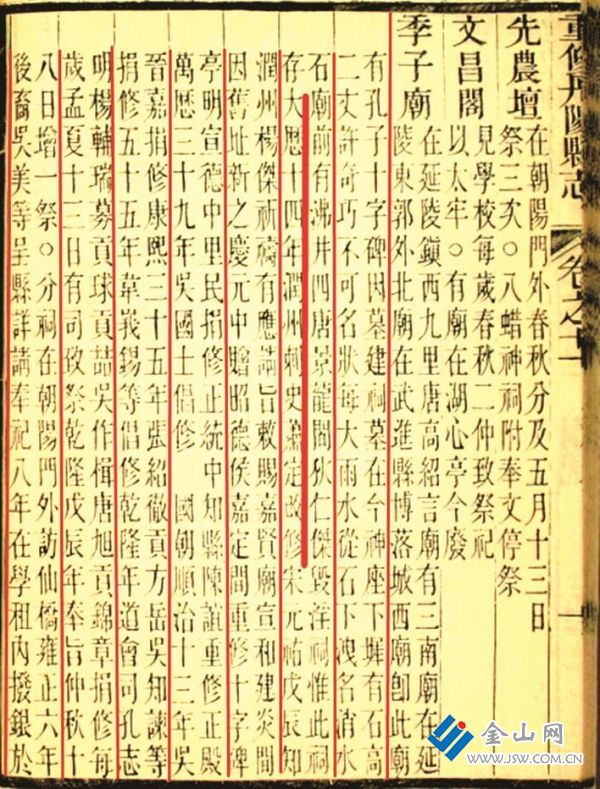 重修丹陽縣志 卷之
先農壇 在朝陽門外春秋分及五月十三日
祭三次○八蜡神祠附奉文停祭
文昌閣 見學校每歲春秋二仲致祭祀
以太牢○有廟在湖心亭今廢
季子廟 在延陵鎮西九里唐高紹言廟有三南廟在延
陵東郭外北廟在武進縣博落城西廟卽此廟
有孔子十字碑因墓建祠墓在今神座下墀有石高
二丈許奇巧不可名狀每大雨水從石下洩名消水
石廟前有沸井四唐景龍間狄仁傑毀淫祠惟此祠
存大歷十四年潤州刺史蕭定改修宋元祐戊辰知
潤州楊傑祈禱有應請旨敕賜嘉賢廟宣和建炎間
因舊址新之慶元中贈昭德侯嘉定間重修十字碑
亭明宣德中里民捐修正統中知縣陳誼重修正殿
萬歷三十九年吳國士倡修 國朝順治十三年吳
晉嘉捐修康熙三十五年張紹徽貢方岳吳知諫等
捐修五十五年韋錫等倡修乾隆年道會司孔志
明楊輔瑞募貢球貢喆吳作楫唐旭貢錦章捐修每
歲孟夏十三日有司致祭乾隆戊辰年奉旨仲秋十
八日增一祭○分祠在朝陽門外訪仙橋雍正六年
後裔吳美等呈縣詳請奉祀八年在學租內撥銀於
金山网
WWW.JSW.COM.CN